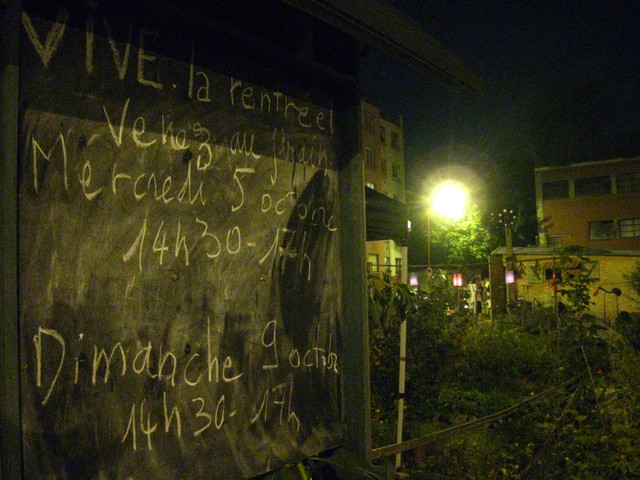 VIVE la rentrée!
Venez au jardin
Mercredi 5 octobre
14h30-17h
Dimanche 9 octobre
14h30-17h